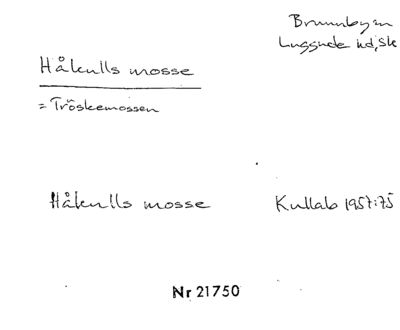 Brunnby sn
Luggude hd, Sk
Håkulls mosse
= Tröskemossen
Håkulls mosse Kullab 1957:75
Nr 21750